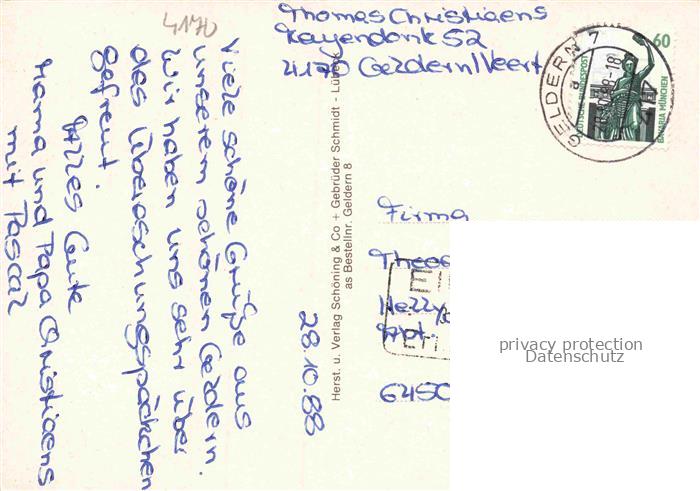 4170
Thomas Christiaens
Kayendonk 52
4170 Geldern/Veert
Viele schöne Grüße aus
unserem schönen Geldern.
Wir haben uns sehr über
das Überaschungspäckchen
gefreut.
Alles Gute
Mama und Papa Christiaens
mit Pascal
28.10.88
Herst. u. Verlag Schöning & Co + Gebrüder Schmidt - Lübeck
as Bestellnr. Geldern 8
GELDERN 7
60
DEUTSCHE BUNDESPOST
BAVARIA MÜNCHEN
Firma
6450
privacy protection
Datenschutz